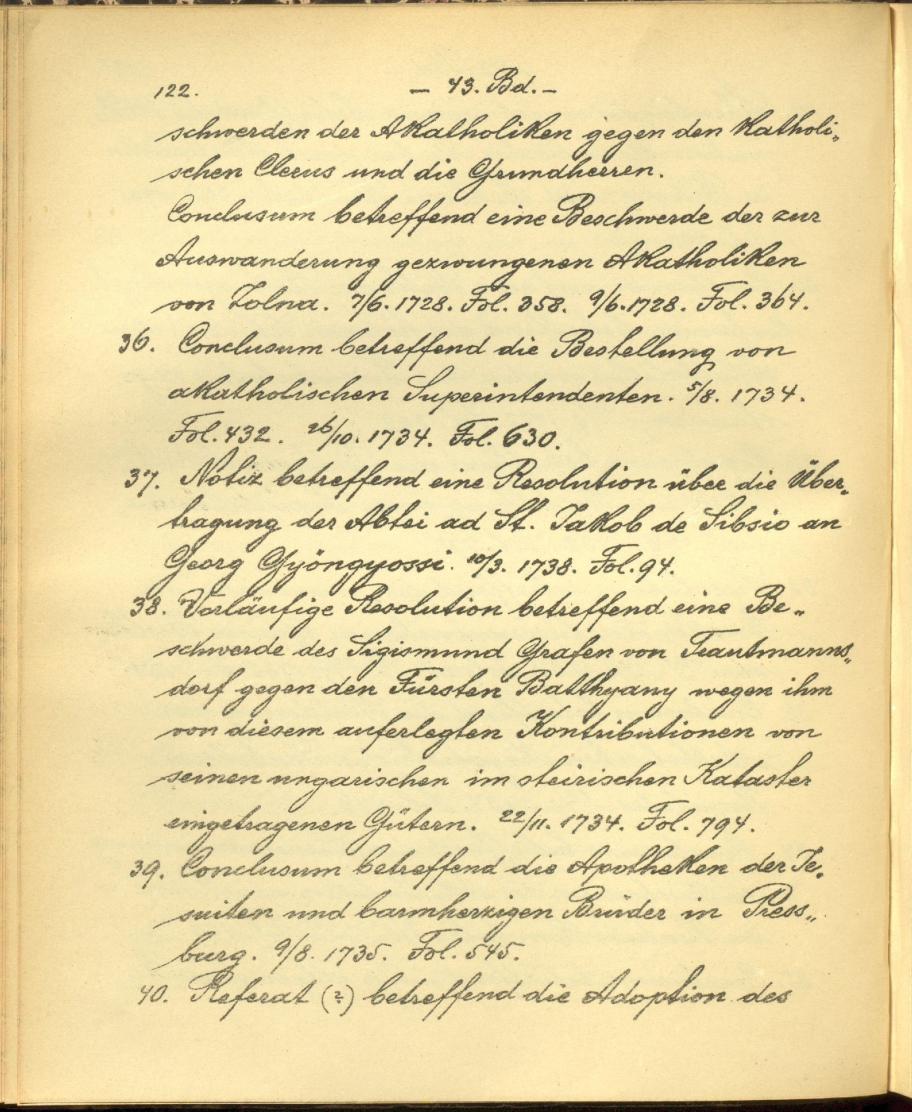 122.
– 43. Bd. –
schwerden der Akatholiken gegen den katholi„
schen Clerus und die Grundherren.
Conclusum betreffend eine Beschwerde der zur
Auswanderung gezwungenen Akatholiken
von Zolna. 7/6. 1728. Fol. 358. 9/6. 1728. Fol. 364.
36. Conclusum betreffend die Bestellung von
akatholischen Superintendenten. 5/8. 1734.
Fol. 432. 26/10. 1734. Fol. 630.
37. Notiz betreffend eine Resolution über die Über„
tragung der Abtei ad St. Jakob de Sibsio an
Georg Gyöngyossi. 10/3. 1738. Fol. 94.
38. Vorläufige Resolution betreffend eine Be„
schwerde des Sigismund Grafen von Trautmanns„
dorf gegen den Fürsten Batthyany wegen ihm
von diesem auferlegten Kontributionen von
seinen ungarischen im steirischen Kataster
eingetragenen Gütern. 22/11. 1734. Fol. 794.
39. Conclusum betreffend die Apotheken der Je„
suiten und barmherzigen Brüder in Press„
burg. 9/8. 1735. Fol. 545.
40. Referat (?) betreffend die Adoption des